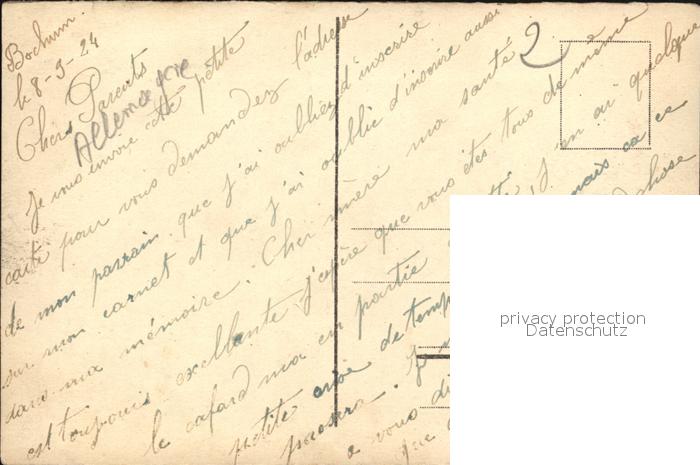 Bochum.
le 8-5-24
Chers Parents
Allemagne
Je vous envoie cette petite
carte pour vous demandez l'adresse
de mon parrain que j'ai oubliez d'inscrire
sur mon carnet et que j'ai oublié d'inscrire aussi
dans ma mémoire. Cher mère ma santé
est toujours excellente j'espère que vous êtes tous de même
le cafard m'a en partie j'en ai quelque
petite crise de temps mais ça ce
passera. chose
a vous di
que
2
privacy protection
Datenschutz